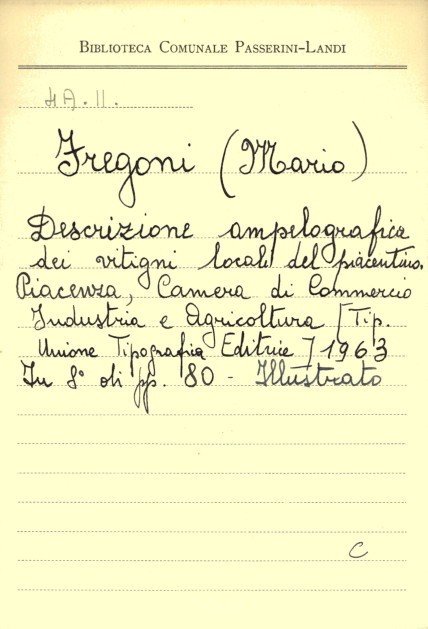 BIBLIOTECA COMUNALE PASSERINI-LANDI
4A.11.
Fregoni (Mario)
Descrizione ampelografica
dei vitigni locali del piacentino.
Piacenza, Camera di Commercio
Industria e Agricoltura [Tip.
Unione Tipografica Editrice] 1963
In 8° di pp. 80 - Illustrato
C